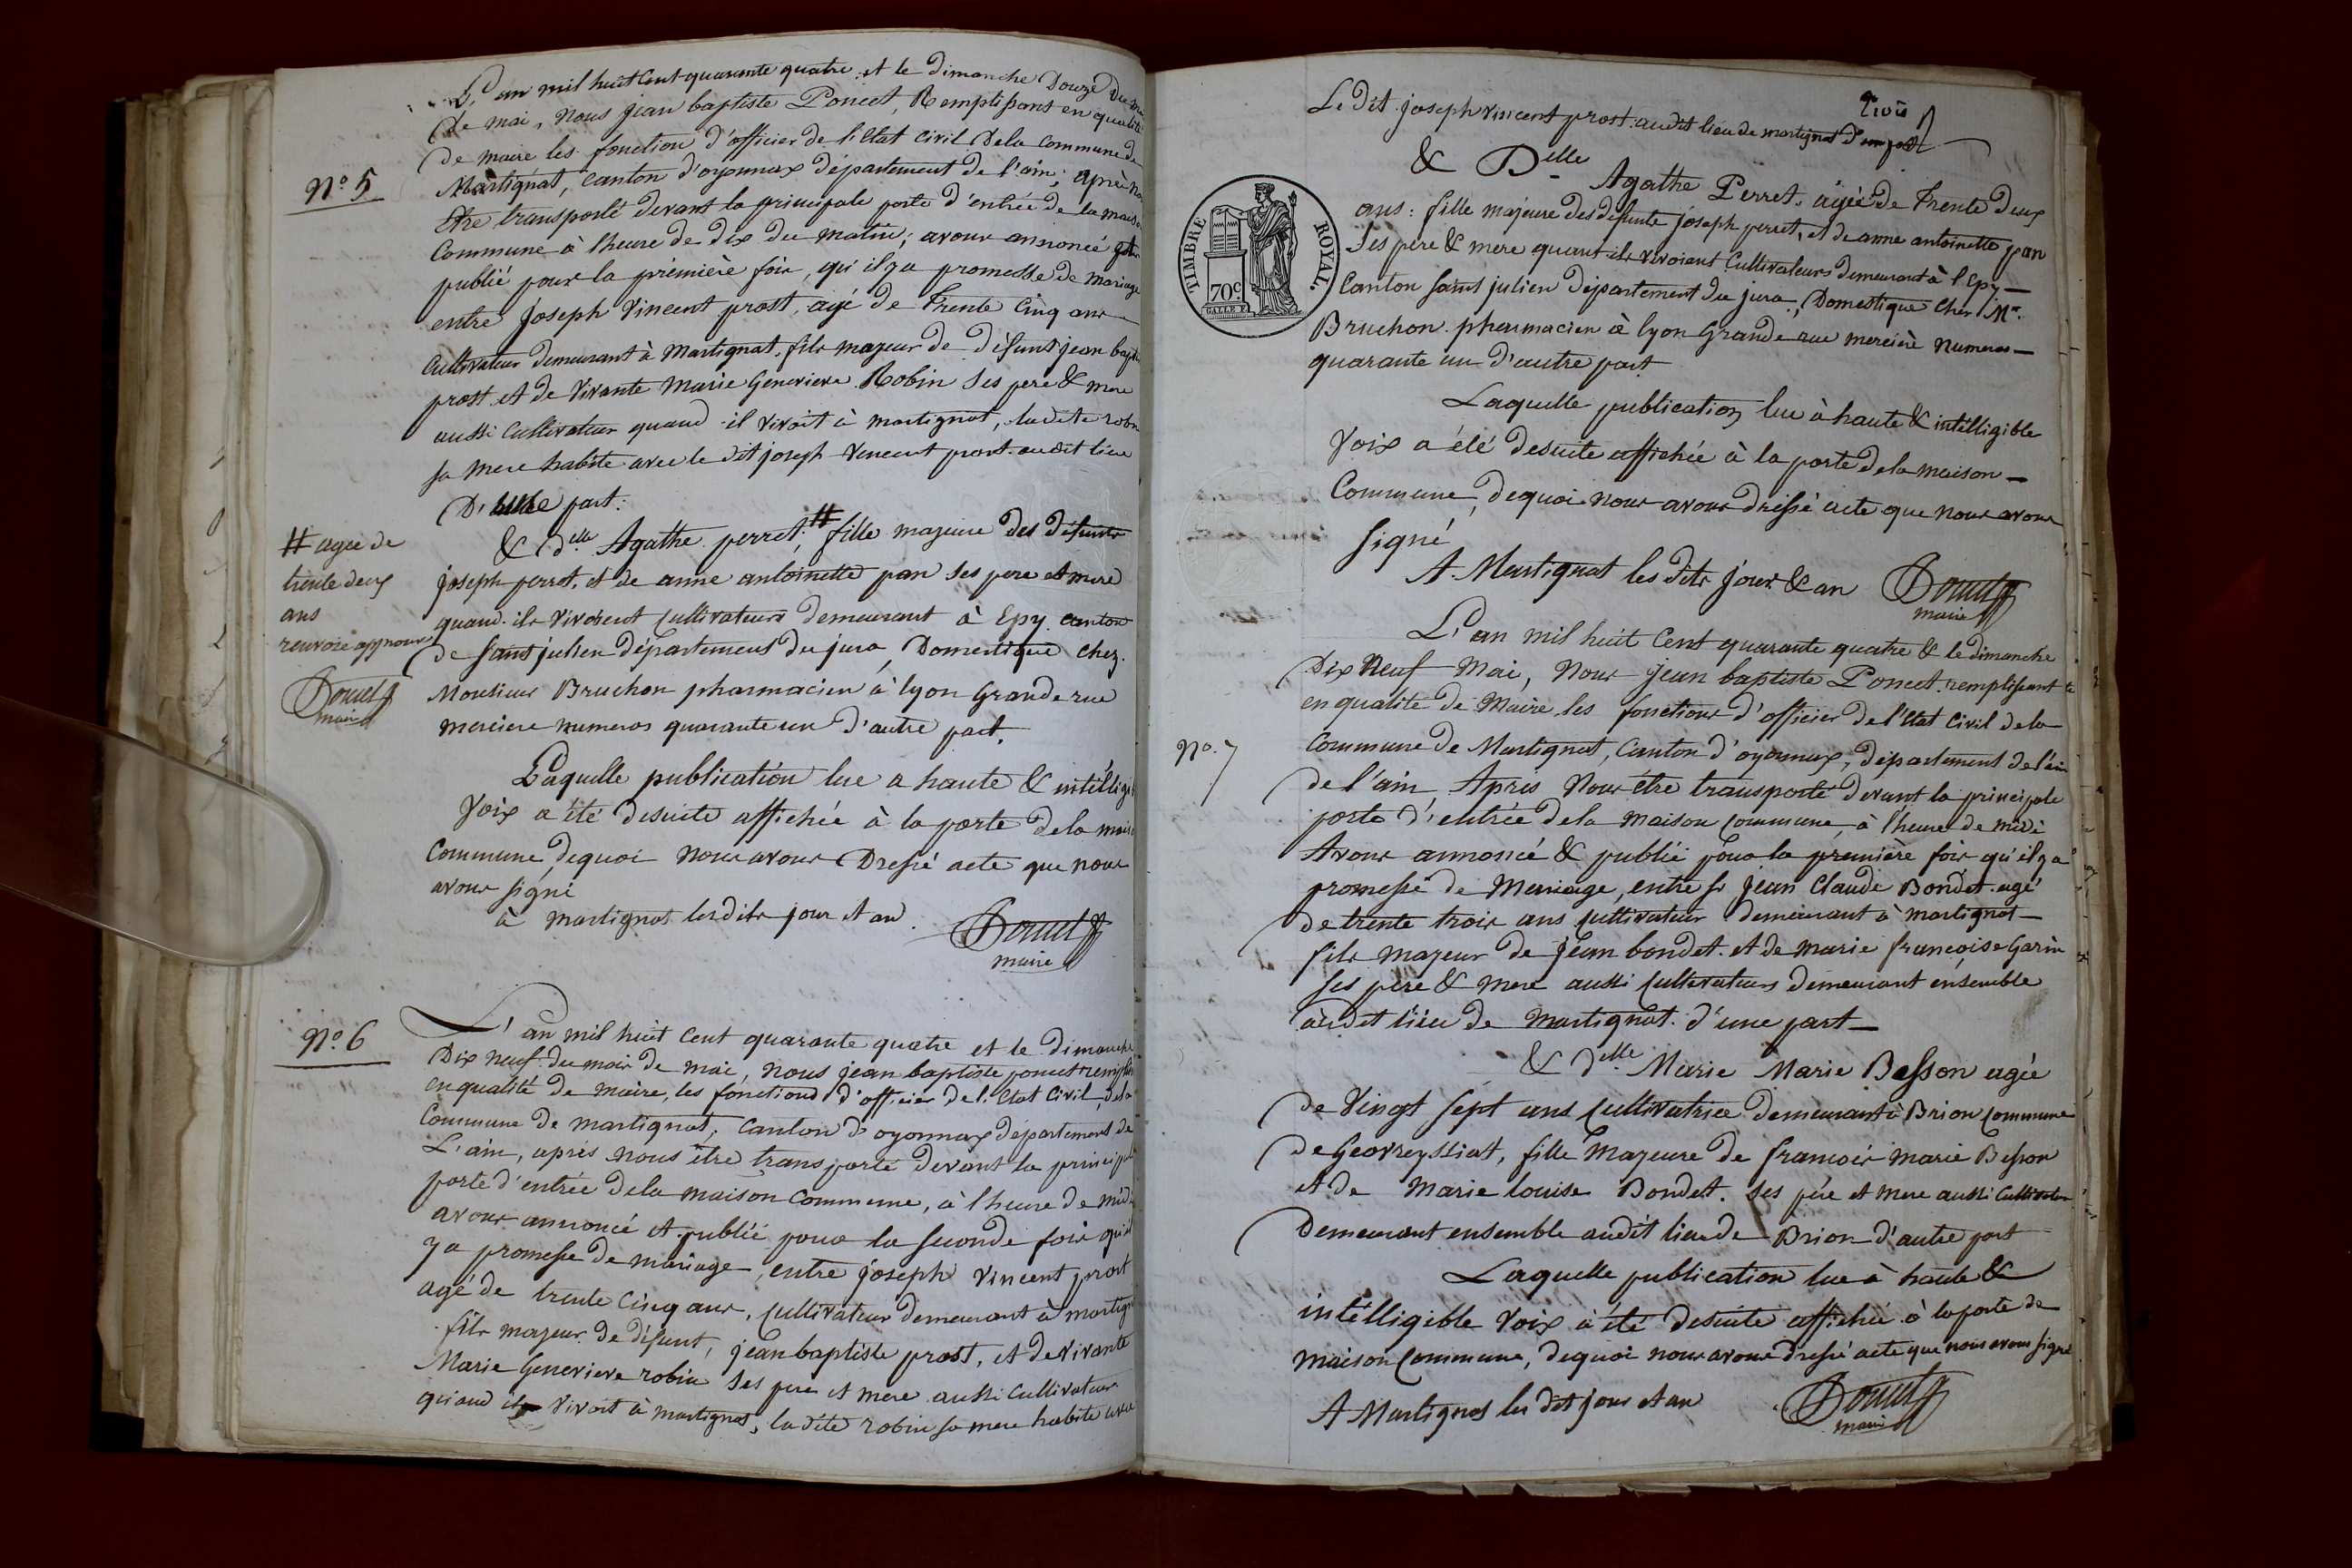 L'an mil huit Cent quarante quatre et le dimanche Douze du mois
de mai, nous jean baptiste Poncet, Remplissant en qualité
de maire les fonction d'officier de l'Etat Civil Dela Commune de
Nº 5
Martignat, Canton d'oyonnax département de l'ain; après
Etre transporté devant la principale porte d'entrée de la maison
Commune à l'heure de dix du matin; avons annoncé
publié pour la première fois, qu'il y a promesse de mariage
entre Joseph Vincent prost, agé de Trente Cinq ans
Cultivateur demeurant à Martignat, fils majeur de défunt jean
prost et de Vivante Marie Genevieve Robin Ses pere & mere
aussi Cultivateur quand il vivoit à martignat, ladite robin
sa mere habite avec le dit joseph Vincent prost audit lieu
D'une part:
& Dlle Agathe perret, # fille majeure des défunts
joseph perret, et de anne antoinette pan ses pere et mere
quand ils Vivoient Cultivateurs demeurant à Epy canton
de Saint julien département du jura, Domestique chez
Monsieur Bruchon pharmacien à lyon Grande rue
merciere numeros quarante un d'autre part.
# agée de
trente deux
ans
renvoie approuvé
Poncet
maire
Laquelle publication lue a haute & intélligible
Voix a été desuite affichée à la porte dela maison
Commune, dequoi nous avons Dressé acte que nous
avons signé
à martignat lesdits jour et an
Poncet
maire
Nº 6
L'an mil huit Cent quarante quatre et le Dimanche
Dix neuf du mois de mai, nous jean baptiste poncet
en qualité de maire, les fonctions d'officier de l'Etat Civil, dela
Commune de martignat, Canton d'oyonnax département de
L'ain, après nous être transporté devant la principale
porte d'entrée dela maison Commune, à l'heure de midi
avons annoncé et publié pour la seconde fois qu'il
y a promesse de mariage, entre joseph Vincent prost
agé de trente Cinq ans, Cultivateur demeurant à martignat
fils majeur de défunt, jean baptiste prost, et de Vivante
Marie Genevieve robin ses pere et mere aussi Cultivateur
quand il Vivoit à martignat, la dite robin sa mere habite avec
trois
Le Dit joseph vincent prost audit lieu de martignat d'une part
& Delle Agathe Perret, agée de Trente Deux
ans: fille majeure des défunts joseph perret, et de anne antoinette pan
Ses pere & mere quant ils vivoient Cultivateurs demeurant à l'Epy
Canton saint julien département du jura, Domestique Chez Mr
Bruchon pharmacien à lyon Grande rue mercière numeros
quarante un d'autre part
TIMBRE ROYAL.
70c
Laquelle publication lue à haute & intélligible
Voix a été desuite affichée à la porte dela maison
Commune, dequoi nous avons dressé acte que nous avons
signé
A Martignat les dits jour & an
Poncet
maire
L'an mil huit Cent quarante quatre & le dimanche
Dix Neuf Mai, Nous jean baptiste Poncet remplissant
en qualité de Maire les fonctions d'officier de l'Etat Civil dela
Nº 7
Commune de Martignat, Canton d'oyonnax, département de l'ain
de l'ain Après Nous être transporté devant la principale
porte d'entrée dela Maison Commune, à l'heure de midi
Avons annoncé & publié pour la première fois qu'il y a
promesse de Mariage, entre Sr Jean Claude Bondet agé
de trente trois ans Cultivateur demeurant à martignat
fils majeur de Jean bondet et de marie françoise Garin
ses père & mere aussi Cultivateurs demeurant ensemble
audit lieu de Martignat d'une part
& dlle Marie Marie Besson agée
de Vingt Sept ans Cultivatrice demeurant à Brion Commune
de Geovreyssiat, fille Majeure de françois marie Besson
et de Marie louise Bondet. ses père et mere aussi Cultivateur
Demeurant ensemble audit lieu de Brion d'autre part
Laquelle publication lue à haute &
intélligible Voix à été desuite affichée à la porte de
maison Commune, dequoi nous avons dressé acte que nous avons signé
A Martignat les dit jour et an
Poncet
maire